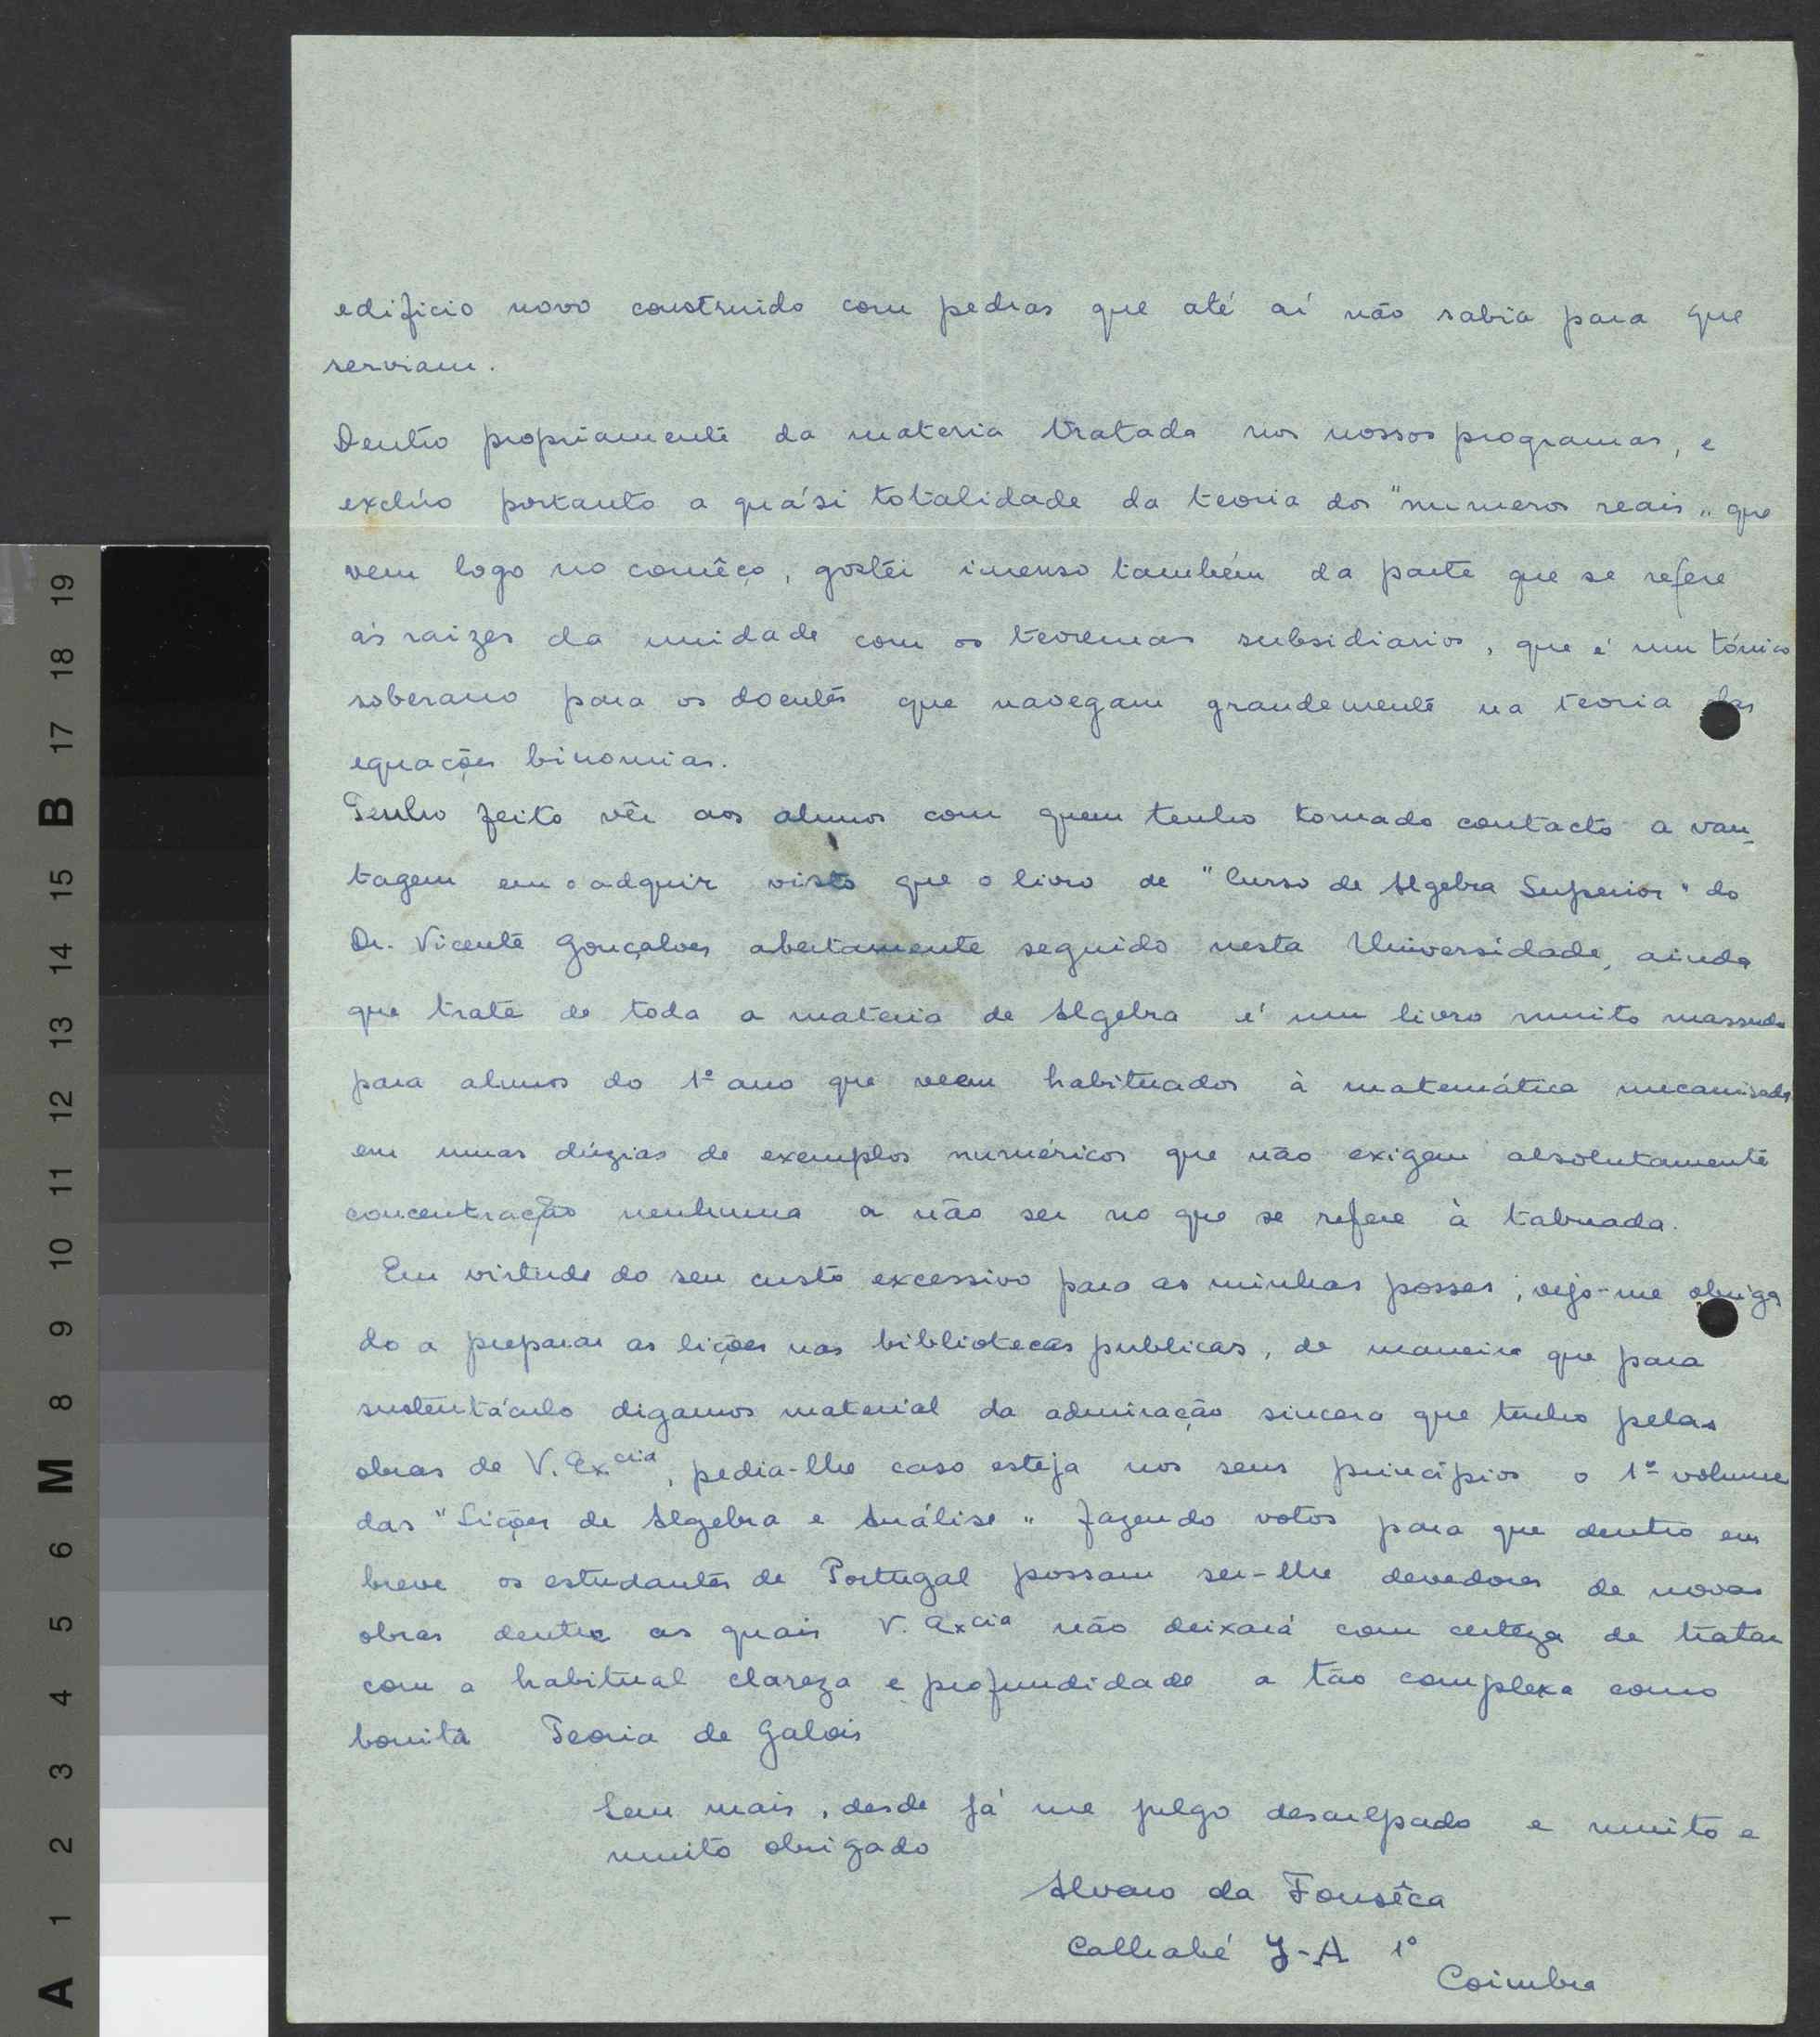 edificio novo construido com pedras que até aí não sabia para que
serviam.
Dentro propriamente da materia tratada nos nossos programas, e
exclúo portanto a quási totalidade da teoria dos "numeros reais" que
vem logo no comêço, gostei imenso também da parte que se refere
ás raizes da unidade com os teoremas subsidiarios, que é um tónico
soberano para os doentes que navegam grandemente na teoria das
equações binomias.
Tenho feito vêr aos alunos com quem tenho tomado contacto a van-
tagem em o adquir visto que o livro de "Curso de Algebra Superior" do
Dr. Vicente Gonçalves abertamente seguido nesta Universidade, ainda
que trate de toda a materia de Algebra é um livro muito massudo
para alunos do 1º ano que veem habituados à matemática mecanisada
em umas dúzias de exemplos numéricos que não exigem absolutamente
concentração nenhuma a não ser no que se refere à tabuada.
Em virtude do seu custo excessivo para as minhas posses, vejo-me obriga
do a preparar as lições nas bibliotecas publicas, de maneira que para
sustentáculo digamos material da admiração sincera que tenho pelas
obras de V. Excia, pedia-lhe caso esteja nos seus princípios o 1º volume
das "Lições de Algebra e Análise" fazendo votos para que dentro em
breve os estudantes de Portugal possam ser-lhe devedores de novas
obras dentre as quais V. Excia não deixará com certeza de tratar
com a habitual clareza e profundidade a tão complexa como
bonita Teoria de Galois
Sem mais, desde já me julgo desculpado e muito e
muito obrigado
Alvaro da Fonsêca
Calhabé J-A 1º
Coimbra
A 1 2 3 4 5 6 M 8 9 10 11 12 13 14 15 B 17 18 19